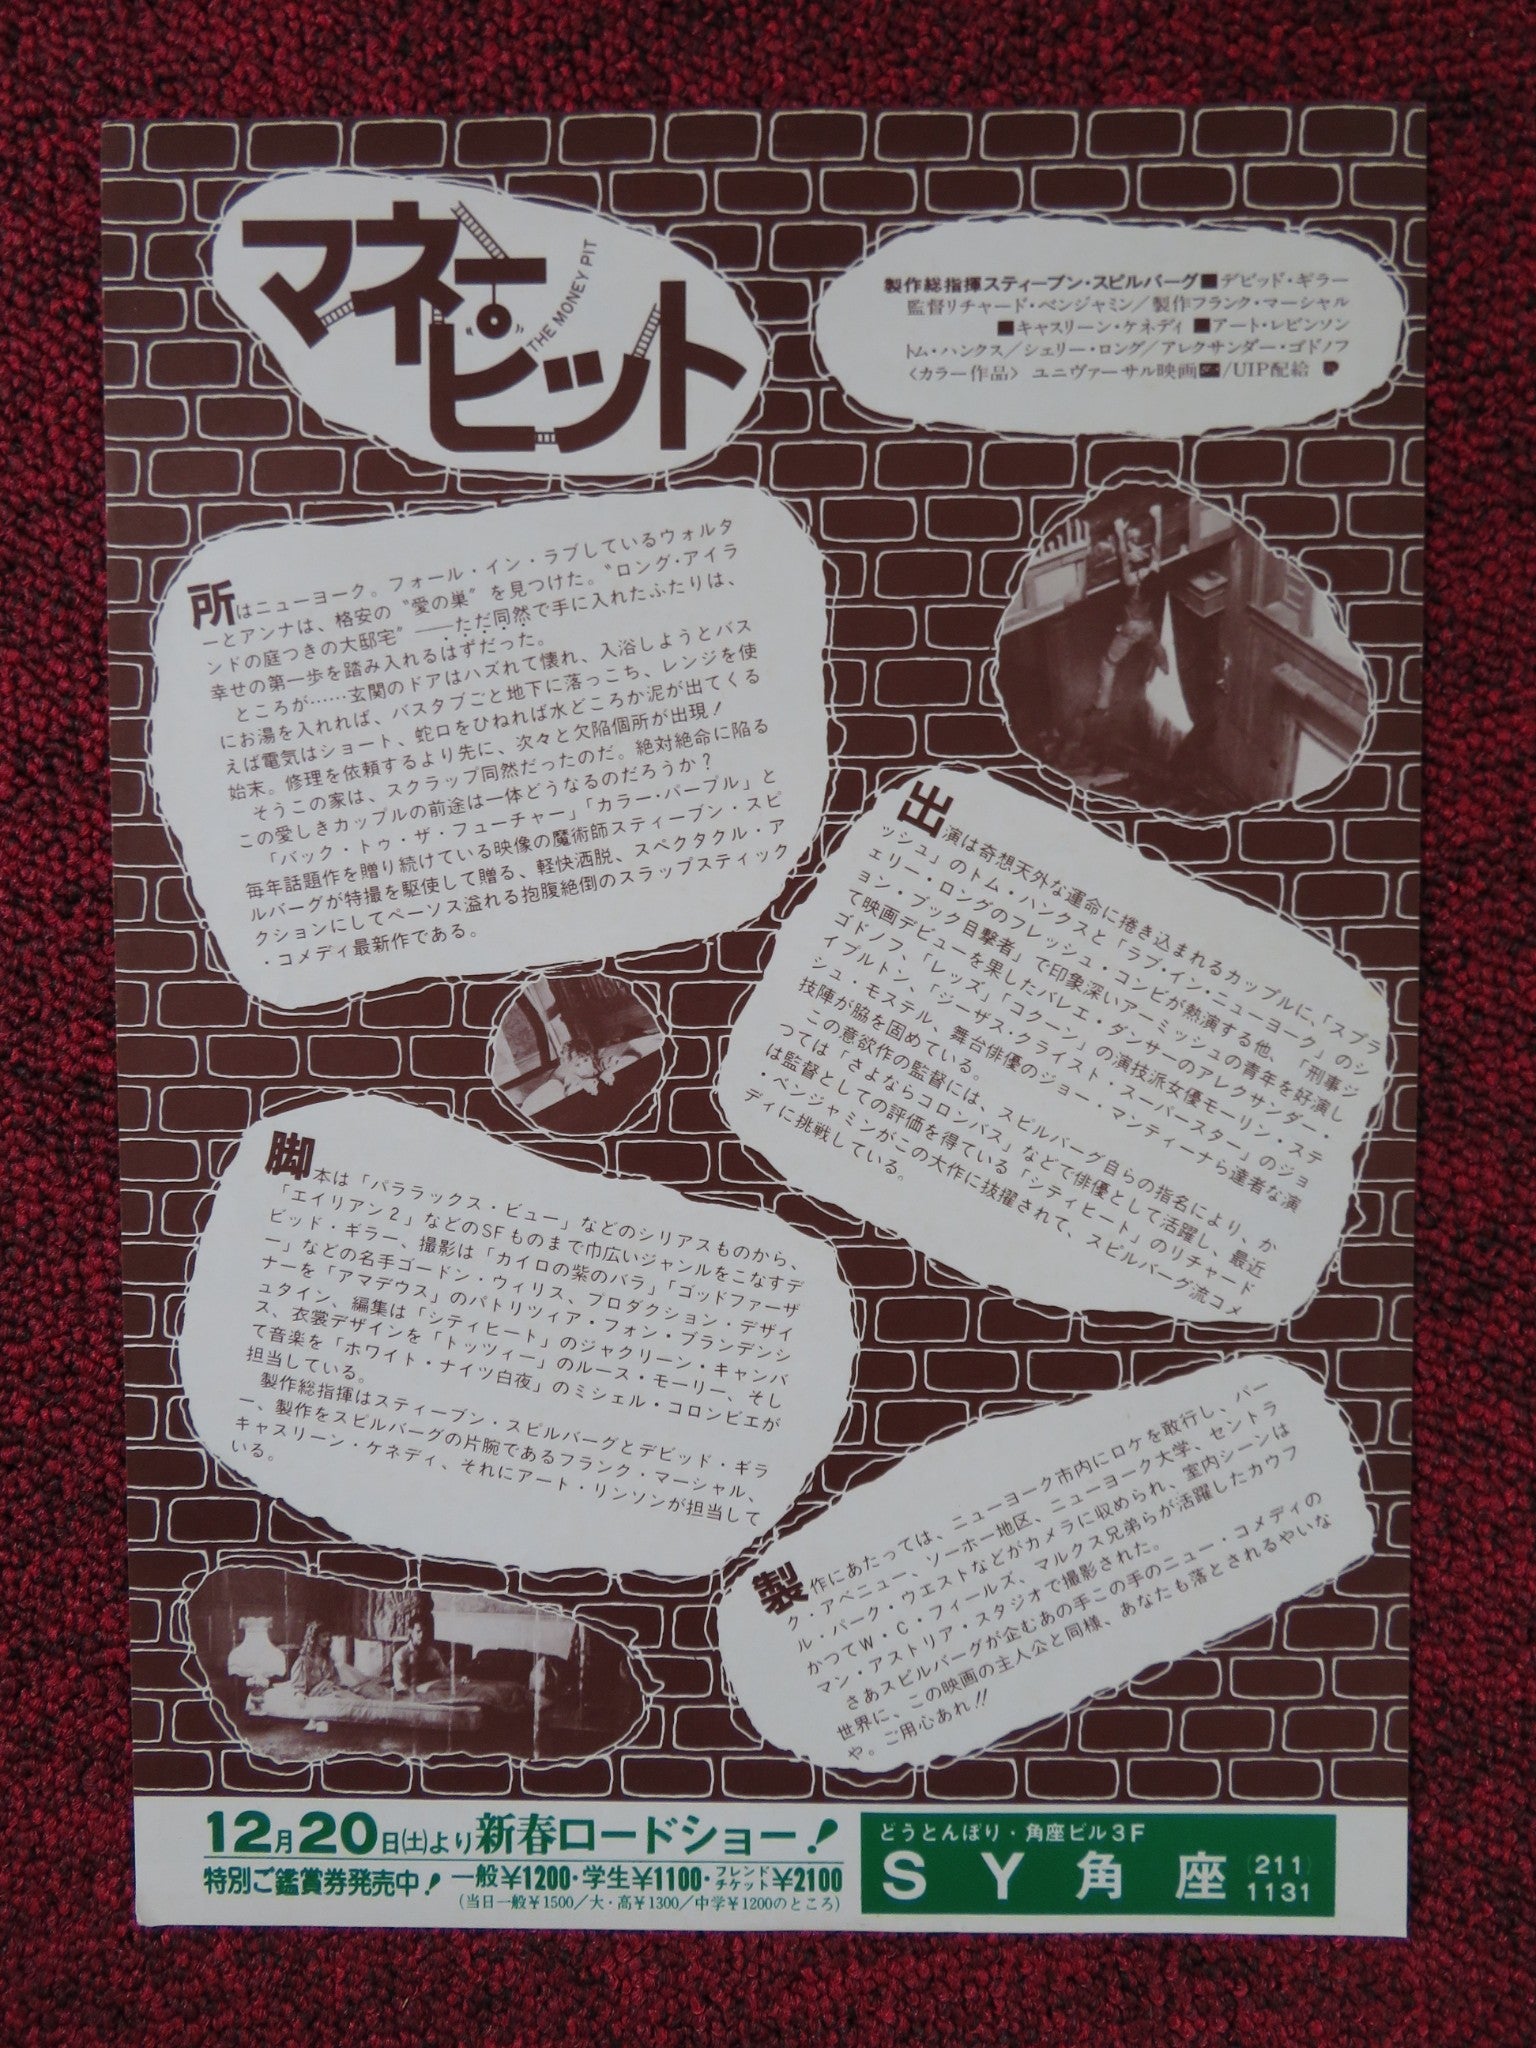 マネー・ピット
THE MONEY PIT
製作総指揮スティーブン・スピルバーグ■デビッド・ギラー
監督リチャード・ベンジャミン／製作フランク・マーシャル
■キャスリーン・ケネディ ■アート・レビンソン
トム・ハンクス／シェリー・ロング／アレクサンダー・ゴドノフ
〈カラー作品〉 ユニヴァーサル映画 /UIP配給
所はニューヨーク。フォール・イン・ラブしているウォルタ
ーとアンナは、格安の〝愛の巣〟を見つけた。〝ロング・アイラ
ンドの庭つきの大邸宅〟――ただ同然で手に入れたふたりは、
幸せの第一歩を踏み入れるはずだった。
ところが……玄関のドアはハズれて懐れ、入浴しようとバス
にお湯を入れれば、バスタブごと地下に落っこち、レンジを使
えば電気はショート、蛇口をひねれば水どころか泥が出てくる
始末。修理を依頼するより先に、次々と欠陥個所が出現！
そうこの家は、スクラップ同然だったのだ。絶対絶命に陥る
この愛しきカップルの前途は一体どうなるのだろうか？
「バック・トゥ・ザ・フューチャー」「カラー・パープル」と
毎年話題作を贈り続けている映像の魔術師スティーブン・スピ
ルバーグが特撮を駆使して贈る、軽快洒脱、スペクタクル・ア
クションにしてペーソス溢れる抱腹絶倒のスラップスティック
・コメディ最新作である。
出演は奇想天外な運命に捲き込まれるカップルに、「スプラ
ッシュ」のトム・ハンクスと「ラブ・イン・ニューヨーク」のシ
ェリー・ロングのフレッシュ・コンビが熱演する他、「刑事ジ
ョン・ブック目撃者」で印象深いアーミッシュの青年を好演し
て映画デビューを果したバレエ・ダンサーのアレクサンダー・
ゴドノフ、「レッズ」「コクーン」の演技派女優モーリン・ステ
イプルトン、「ジーザス・クライスト・スーパースター」のジョ
シュ・モステル、舞台俳優のジョー・マンティーナら達者な演
技陣が脇を固めている。
この意欲作の監督には、スピルバーグ自らの指名により、か
つては「さよならコロンバス」などで俳優として活躍し、最近
は監督としての評価を得ている「シティヒート」のリチャード
・ベンジャミンがこの大作に抜擢されて、スピルバーグ流コメ
ディに挑戦している。
脚本は「パララックス・ビュー」などのシリアスものから、
「エイリアン２」などのSFものまで巾広いジャンルをこなすデ
ビッド・ギラー、撮影は「カイロの紫のバラ」「ゴッドファーザ
ー」などの名手ゴードン・ウィリス、プロダクション・デザイ
ナーを「アマデウス」のパトリツィア・フォン・ブランデンシ
ュタイン、編集は「シティヒート」のジャクリーン・キャンバ
ス、衣裳デザインを「トッツィー」のルース・モーリー、そし
て音楽を「ホワイト・ナイツ白夜」のミシェル・コロンビエが
担当している。
製作総指揮はスティーブン・スピルバーグとデビッド・ギラ
ー、製作をスピルバーグの片腕であるフランク・マーシャル、
キャスリーン・ケネディ、それにアート・リンソンが担当して
いる。
製作にあたっては、ニューヨーク市内にロケを敢行し、パー
ク・アベニュー、ソーホー地区、ニューヨーク大学、セントラ
ル・パーク・ウエストなどがカメラに収められ、室内シーンは
かつてW・C・フィールズ、マルクス兄弟らが活躍したカウフ
マン・アストリア・スタジオで撮影された。
さあスピルバーグが企むあの手この手のニュー・コメディの
世界に、この映画の主人公と同様、あなたも落とされるやいな
や。ご用心あれ!!
12月20日(土)より新春ロードショー！
特別ご鑑賞券発売中！ 一般¥1200・学生¥1100・フレンドチケット¥2100
(当日一般¥1500／大・高¥1300／中学¥1200のところ)
どうとんぼり・角座ビル３F
SY角座 (211)1131